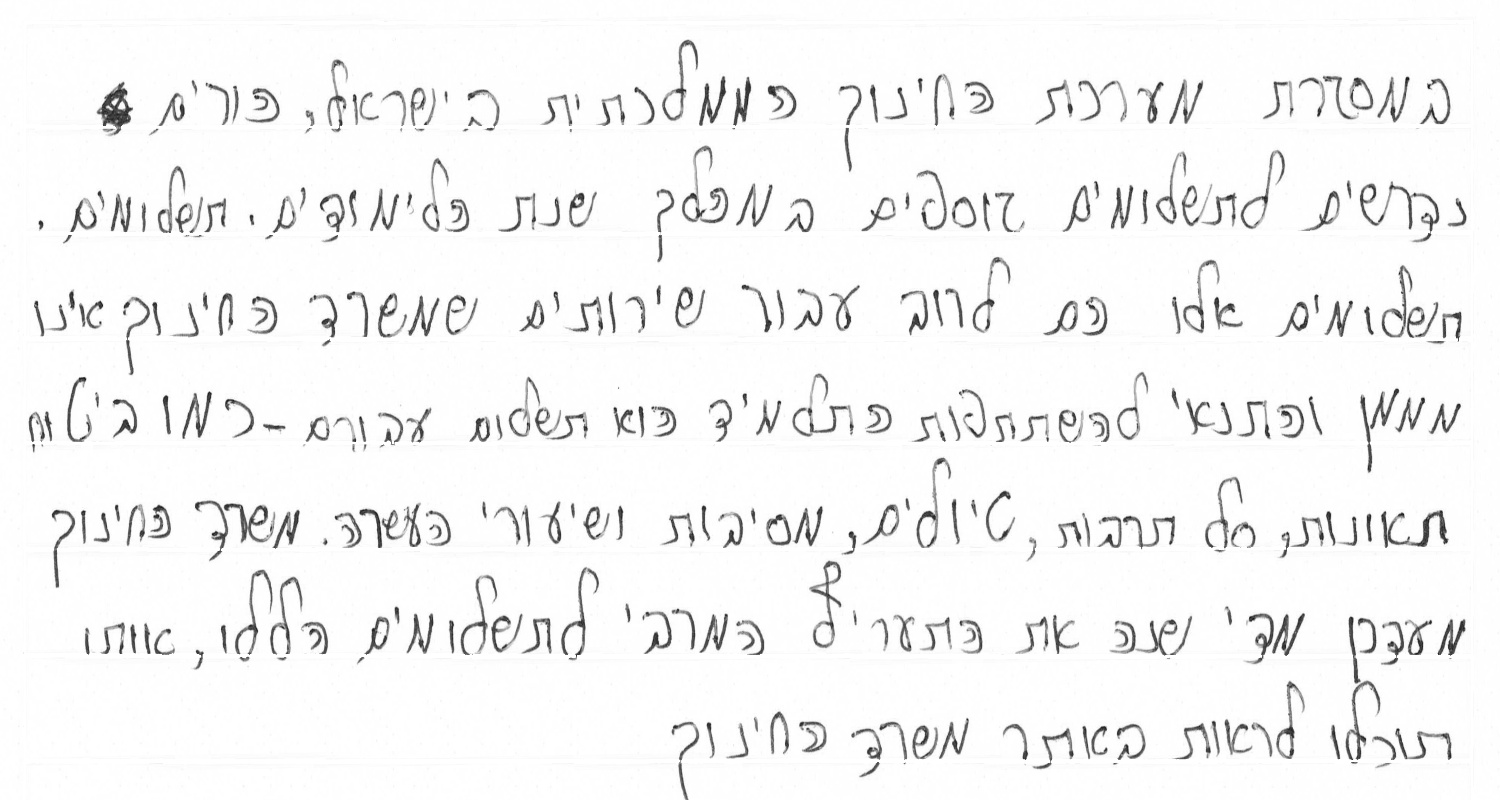 במסגרת מערכת החינוך הממלכתית בישראל, הורים
נדרשים לתשלומים נוספים במהלך שנת הלימודים. תשלומים.
תשלומים אלו הם לרוב עבור שירותים שמשרד החינוך אינו
מממן והתנאי להשתתפות התלמיד הוא תשלום עבורם - כמו ביטוח
תאונות, סל תרבות, טיולים, מסיבות ושיעורי העשרה. משרד החינוך
מעדכן מדי שנה את התעריף המרבי לתשלומים הללו, אותו
תוכלו לראות באתר משרד החינוך